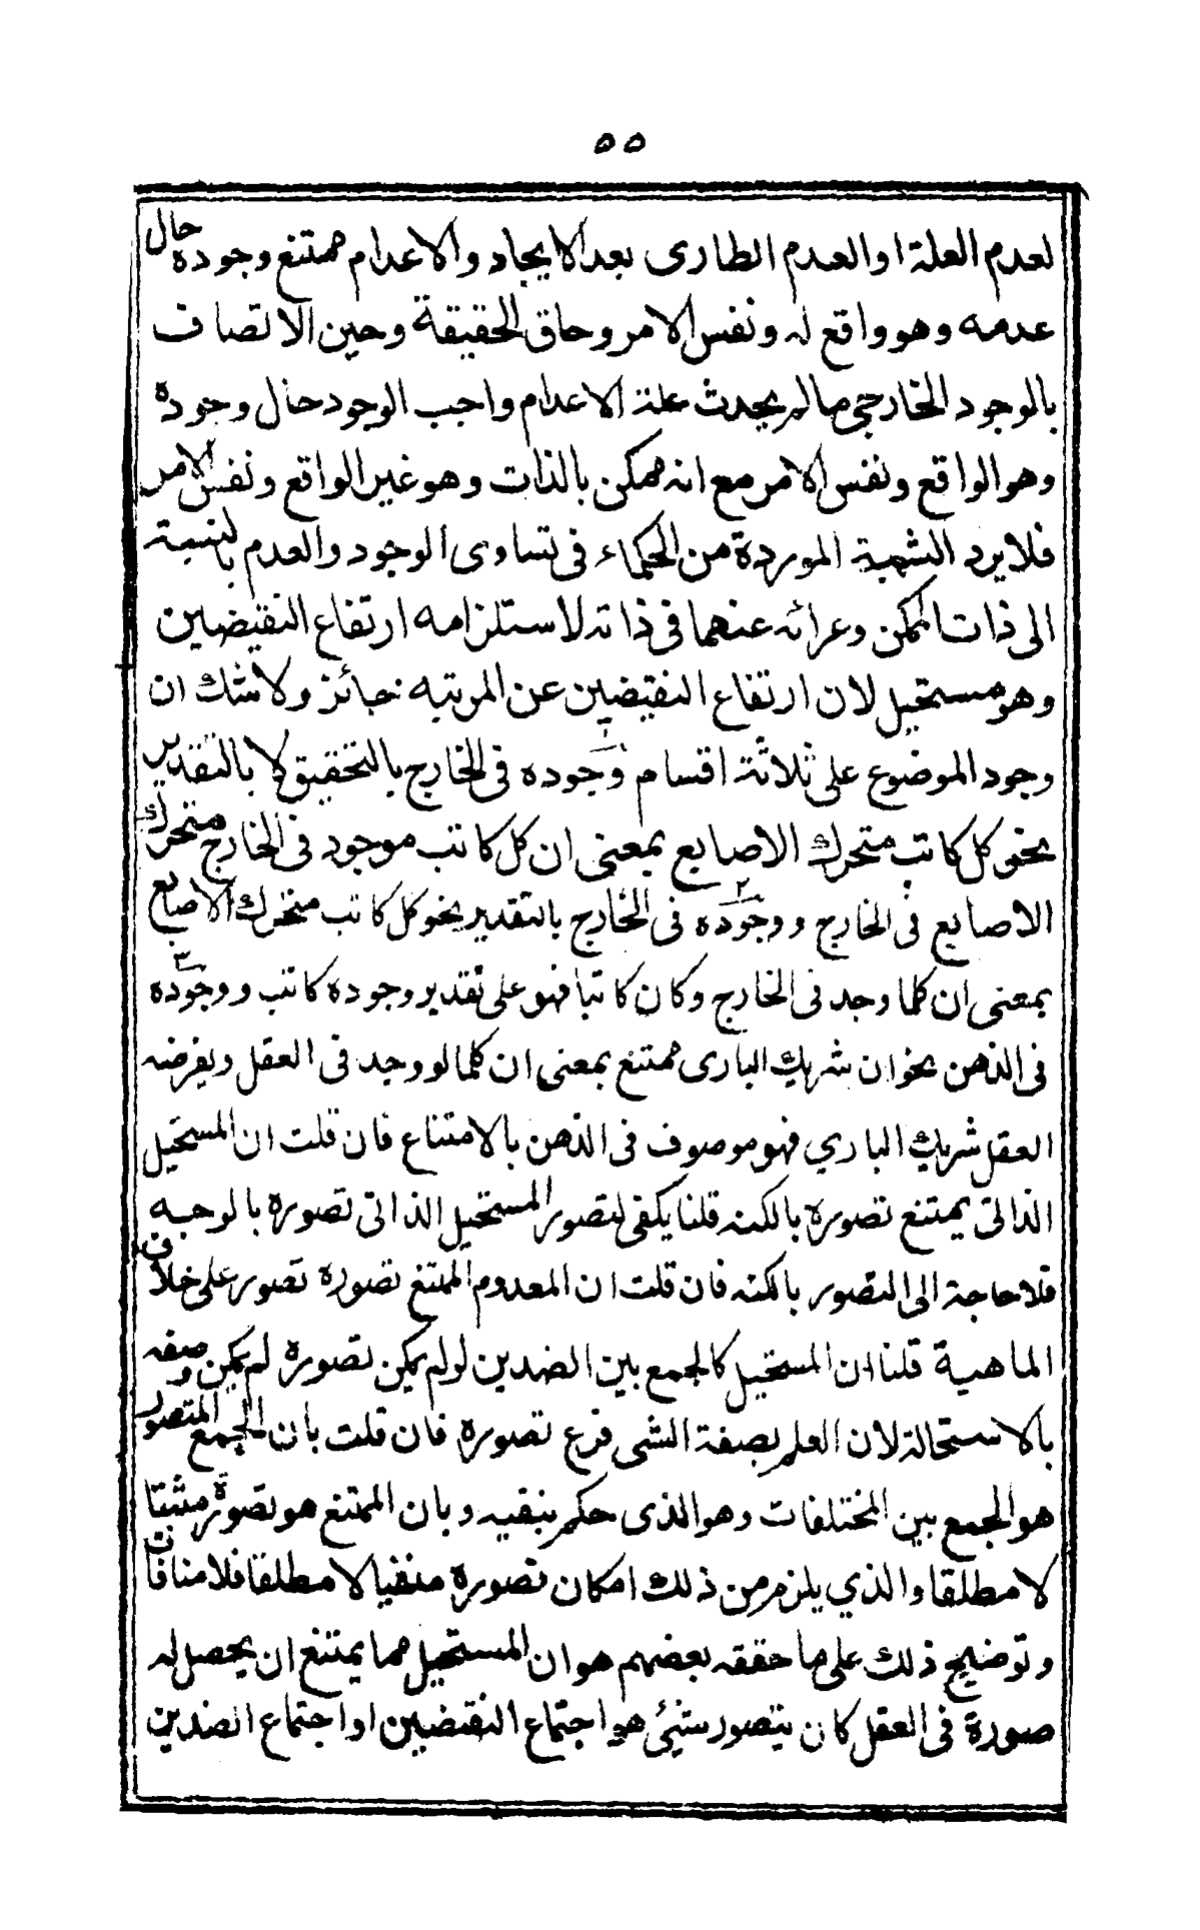 ٥٥
لعدم العلة او العدم الطارى بعد الايجاد والاعدام ممتنع وجوده حال
عدمه وهو واقع له ونفس الامر وحاق الحقيقة وحين الاتصاف
بالوجود الخارجي مالم يحدث علة الاعدام واجب الوجود حال وجوده
وهو الواقع ونفس الامر مع انه ممكن بالذات وهو غير الواقع ونفس الامر
فلا يرد الشبهة الموردة من الحكماء فى تساوى الوجود والعدم بالنسبة
الى ذات الممكن وعرائه عنهما فى ذاته لاستلزامه ارتفاع النقيضين
وهو مستحيل لان ارتفاع النقيضين عن المرتبه جائز ولا شك ان
وجود الموضوع على ثلاثة اقسام ١ وجوده فى الخارج بالتحقيق لا بالتقدير
نحو كل كاتب متحرك الاصابع بمعنى ان كل كاتب موجود فى الخارج متحرك
الاصابع فى الخارج ٢ ووجوده فى الخارج بالتقدير نحو كل كاتب متحرك الاصابع
بمعنى ان كلما وجد فى الخارج وكان كاتبا فهو على تقدير وجوده كاتب ٣ ووجوده
فى الذهن نحو ان شريك البارى ممتنع بمعنى ان كلما لو وجد فى العقل ويفرضه
العقل شريك الباري فهو موصوف فى الذهن بالامتناع فان قلت ان المستحيل
الذاتى يمتنع تصوره بالكنه قلنا يكفى لتصور المستحيل الذاتى تصوره بالوجه
فلا حاجة الى التصور بالكنه فان قلت ان المعدوم الممتنع تصوره تصور على خلاف
الماهية قلنا ان المستحيل كالجمع بين الضدين لو لم يكن تصوره لم يكن وصفه
بالاستحالة لان العلم بصفة الشى فرع تصوره فان قلت بان الجمع المتصور
هو الجمع بين المختلفات وهو الذى حكم بنفيه وبان الممتنع هو تصوره مثبتا
لا مطلقا والذي يلزم من ذلك امكان تصوره منفيا لا مطلقا فلا منافات
وتوضيح ذلك على ما حققه بعضهم هو ان المستحيل مما يمتنع ان يحصل له
صورة فى العقل كان يتصور شيئ هو اجتماع النقيضين او اجتماع الضدين